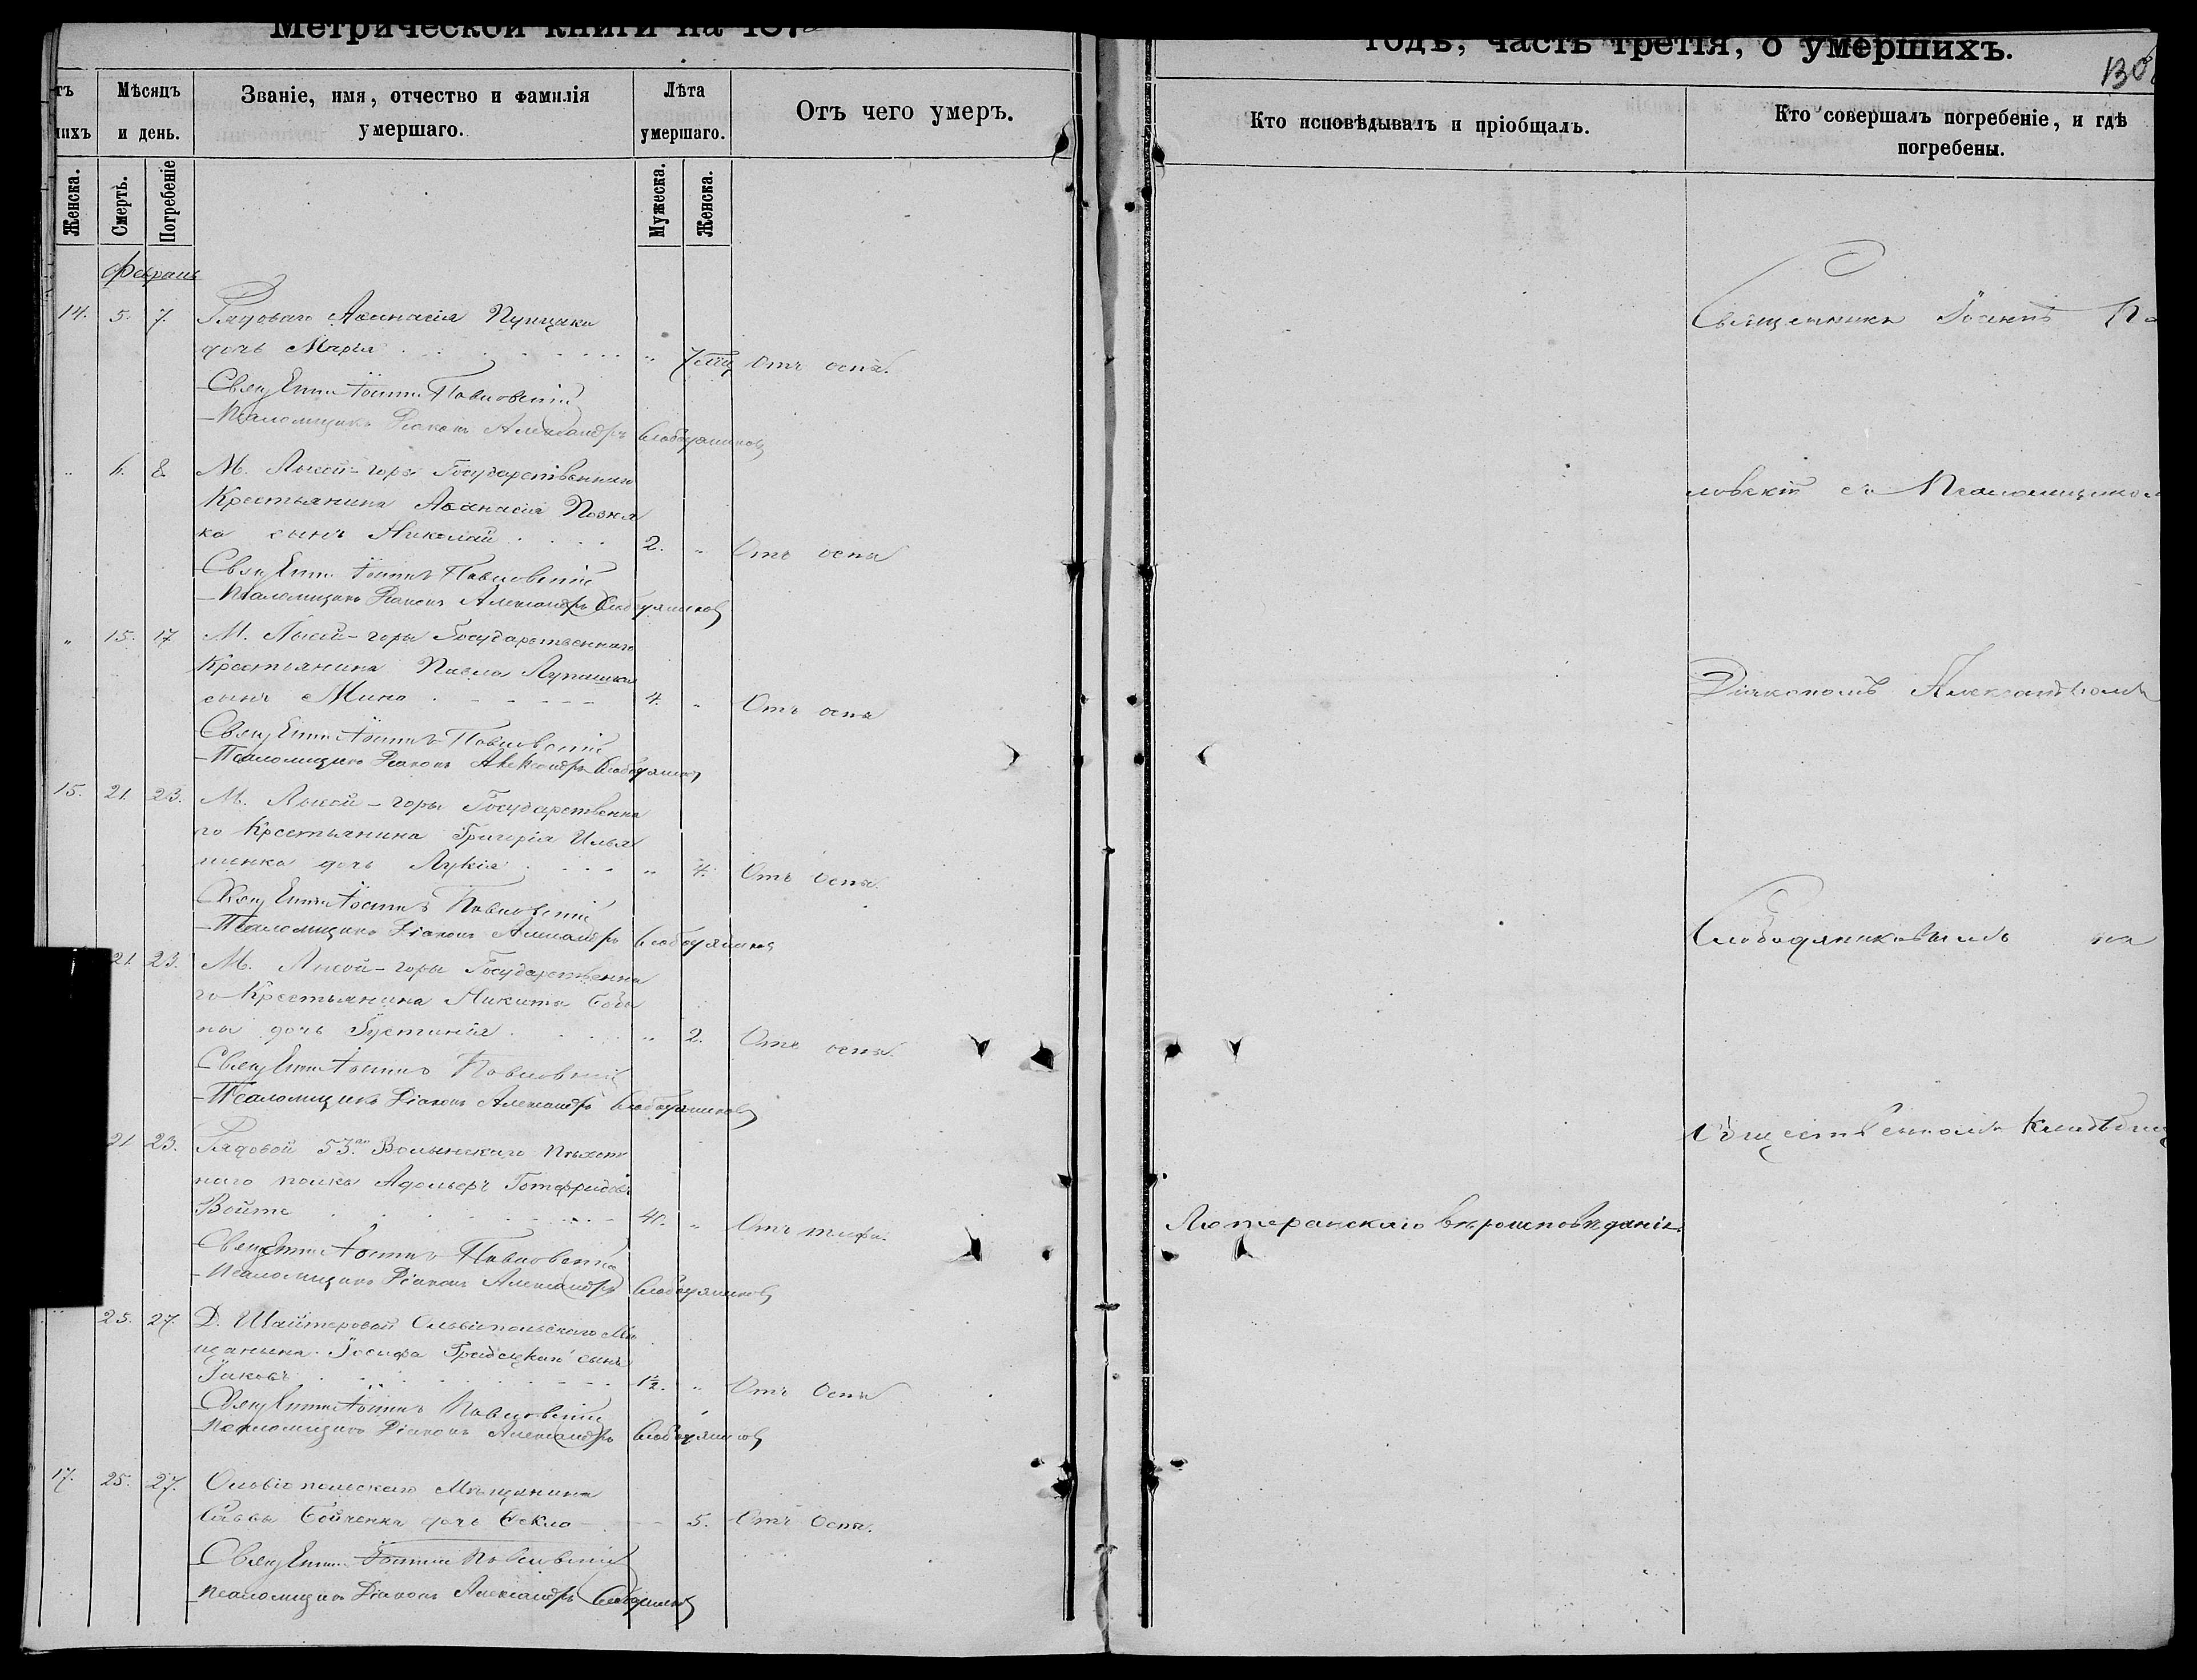 Метрической книги на 187
годъ, часть третія, о умершихъ.
130
Мѣсяцъ и день.
Званіе, имя, отчество и фамилія умершаго.
Лѣта умершаго.
Отъ чего умеръ.
Кто исповѣдывалъ и пріобщалъ.
Кто совершалъ погребеніе, и гдѣ погребены.
Женска.
Смерть.
Погребеніе
Мужеска.
Женска.
Февраль
14. 5. 7. Рядоваго Аѳанасія
дочь Марія " Отъ оспы.
Священникъ Іоаннъ Павловскій
Псаломщикъ Діаконъ Александръ Слободяниковъ
" 6. 8 М. Лысой-горы Государственнаго
Крестьянина Аѳанасія Позня
ка сынъ Николай 2. " Отъ оспы
Священникъ Іоаннъ Павловскій
Псаломщикъ Діаконъ Александръ Слободяниковъ
" 15. 17 М. Лысой-горы Государственнаго
Крестьянина Павла Лупашка
сынъ Мина 4. " Отъ оспы
Священникъ Іоаннъ Павловскій
Псаломщикъ Діаконъ Александръ Слободяниковъ
15. 21. 23. М. Лысой-горы Государственна
го Крестьянина Григорія Илья
шенка дочь Лукія " 4. Отъ оспы.
Священникъ Іоаннъ Павловскій
Псаломщикъ Діаконъ Александръ Слободяниковъ
21. 23. М. Лысой-горы Государственна
го Крестьянина Никиты
дочь Іустинія " 2. Отъ оспы.
Священникъ Іоаннъ Павловскій
Псаломщикъ Діаконъ Александръ Слободяниковъ
21 23. Рядовой 53го Волынскаго пѣхот
наго полка Адольфъ Готфридовъ
Войтъ " Отъ тифа. Лютеранскаго вѣроисповѣданія.
Священникъ Іоаннъ Павловскій
Псаломщикъ Діаконъ Александръ Слободяниковъ
25. 27. Д. Шайтеровой Ольвіопольскаго Мѣ
щанина Іосифа сынъ
Іаковъ 1½. " Отъ Оспы
Священникъ Іоаннъ Павловскій
Псаломщикъ Діаконъ Александръ Слободяниковъ
17. 25. 27. Ольвіопольскаго Мѣщанина
Саввы Бойченка дочь Ѳекла 5. Отъ Оспы.
Священникъ Іоаннъ Павловскій
Псаломщикъ Діаконъ Александръ Слободяниковъ
Священникъ Іоаннъ Па
ловскій съ Псаломщикомъ
Діакономъ Александромъ
Слободяниковымъ на
Общественномъ Кладбищ